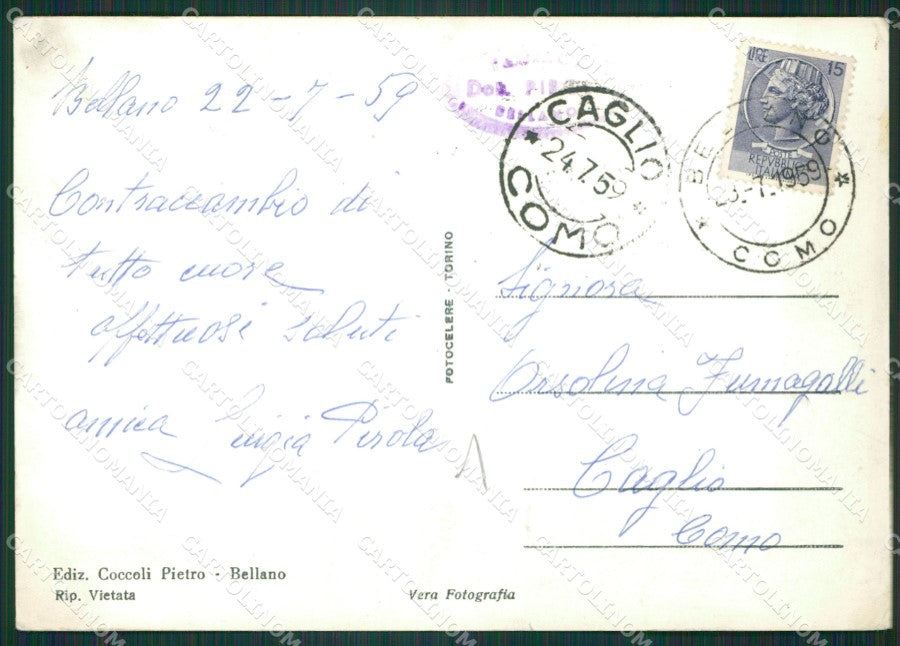 Bellano 22-7-59
Contraccambio di
tutto cuore
affettuosi saluti
amica Luigia Pirola
Ediz. Coccoli Pietro - Bellano
Rip. Vietata
Vera Fotografia
FOTOCELERE - TORINO
CAGLIO
24.7.59
COMO
LIRE 15
POSTE
REPVBBLICA
ITALIANA
1959
COMO
Signora
Orsolina Fumagalli
Caglio
Como
1
CARTOLINOMANIA